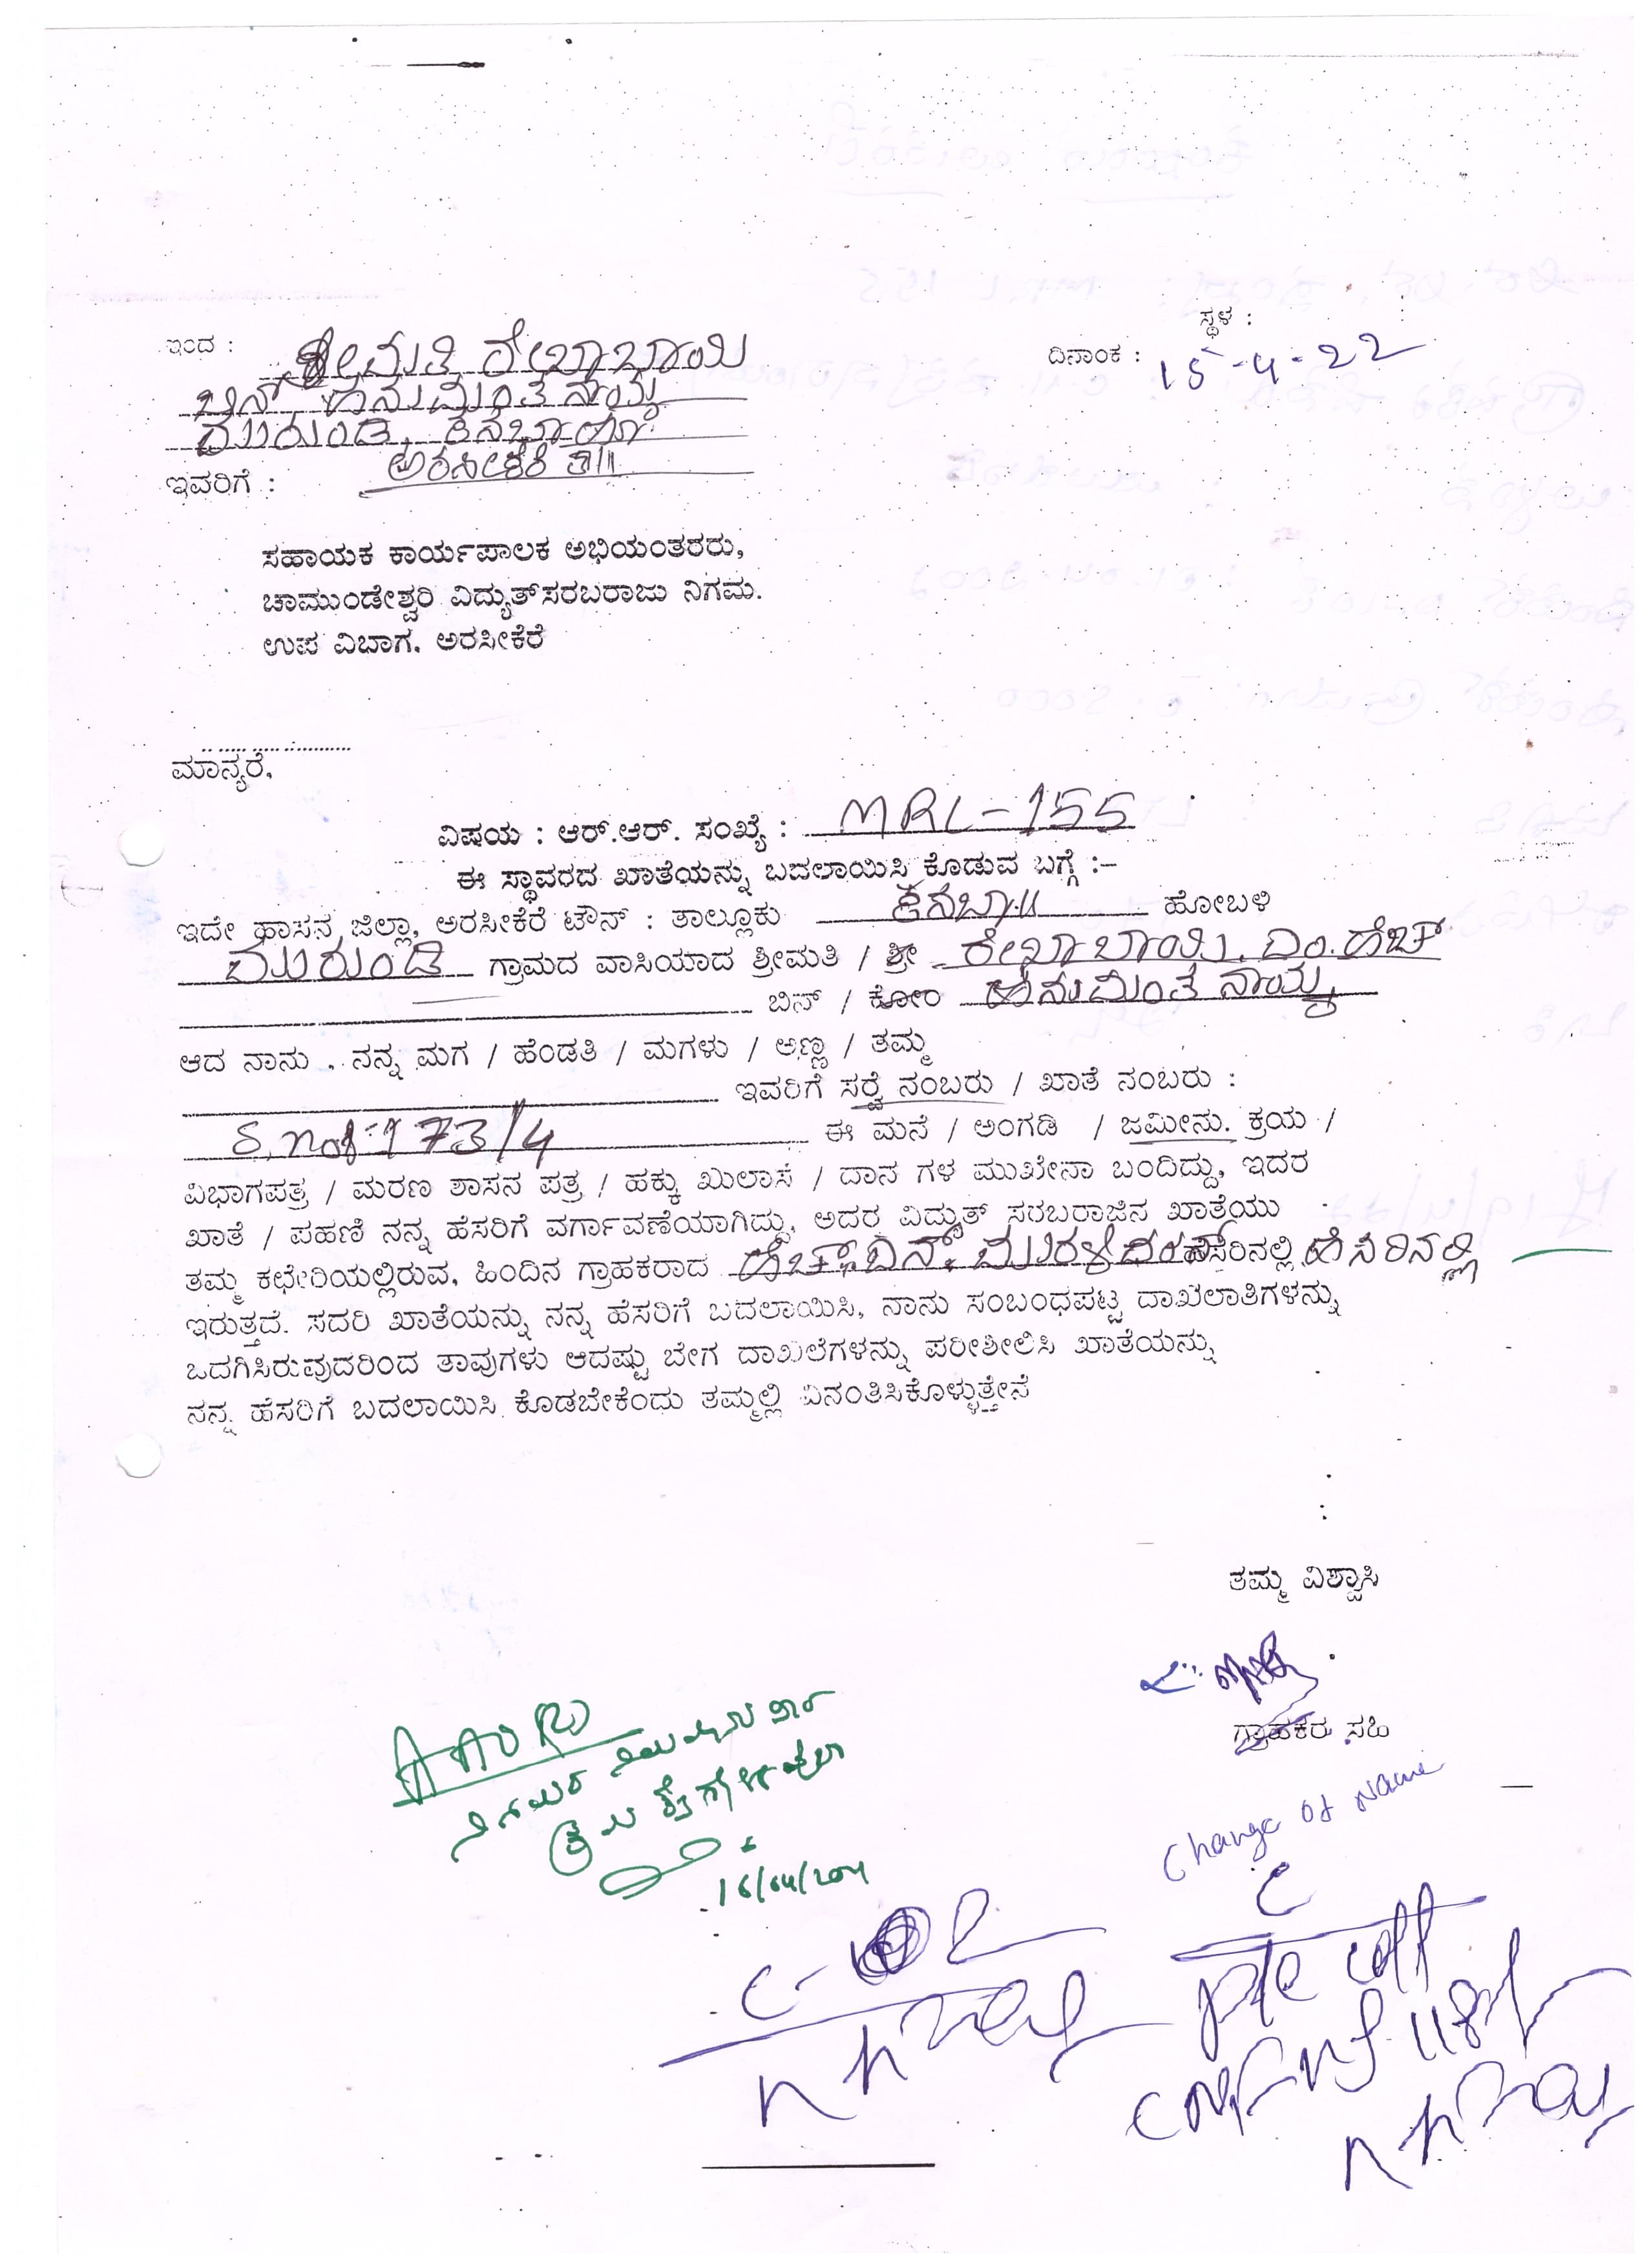 ಸ್ಥಳ :
ಇಂದ : ಶ್ರೀಮತಿ ರೇಖಾಬಾಯಿ
ದಿನಾಂಕ : 15-4-22
ಬಿನ್ ಹನುಮಂತ ನಾಯ್ಕ
ಮುರುಂಡಿ, ಕಸಬಾ ಹೋ
ಅರಸೀಕೆರೆ ತಾ||
ಇವರಿಗೆ :
ಸಹಾಯಕ ಕಾರ್ಯಪಾಲಕ ಅಭಿಯಂತರರು,
ಚಾಮುಂಡೇಶ್ವರಿ ವಿದ್ಯುತ್‌ಸರಬರಾಜು ನಿಗಮ.
ಉಪ ವಿಬಾಗ, ಅರಸೀಕೆರೆ
ಮಾನ್ಯರೆ,
ವಿಷಯ : ಆರ್.ಆರ್. ಸಂಖ್ಯೆ : MRL-155
ಈ ಸ್ಥಾವರದ ಖಾತೆಯನ್ನು ಬದಲಾಯಿಸಿ ಕೊಡುವ ಬಗ್ಗೆ :-
ಇದೇ ಹಾಸನ ಜಿಲ್ಲಾ, ಅರಸೀಕೆರೆ ಟೌನ್ : ತಾಲ್ಲೂಕು ಕಸಬಾ|| ಹೋಬಳಿ
ಮುರುಂಡಿ ಗ್ರಾಮದ ವಾಸಿಯಾದ ಶ್ರೀಮತಿ / ಶ್ರೀ ರೇಖಾಬಾಯಿ. ಎಂ.ಹೆಚ್
ಬಿನ್ / ಕೋಂ ಹನುಮಂತ ನಾಯ್ಕ
ಆದ ನಾನು . ನನ್ನ ಮಗ / ಹೆಂಡತಿ / ಮಗಳು / ಅಣ್ಣ / ತಮ್ಮ
ಇವರಿಗೆ ಸರ್ವೆ ನಂಬರು / ಖಾತೆ ನಂಬರು :
173/4 ಈ ಮನೆ / ಅಂಗಡಿ / ಜಮೀನು. ಕ್ರಯ /
ವಿಭಾಗಪತ್ರ / ಮರಣ ಶಾಸನ ಪತ್ರ / ಹಕ್ಕು ಖುಲಾಸೆ / ದಾನ ಗಳ ಮುಖೇನಾ ಬಂದಿದ್ದು, ಇದರ
ಖಾತೆ / ಪಹಣಿ ನನ್ನ ಹೆಸರಿಗೆ ವರ್ಗಾವಣೆಯಾಗಿದ್ದು, ಅದರ ವಿದ್ಯುತ್ ಸರಬರಾಜಿನ ಖಾತೆಯು
ತಮ್ಮ ಕಛೇರಿಯಲ್ಲಿರುವ, ಹಿಂದಿನ ಗ್ರಾಹಕರಾದ ಹೆಚ್.ಎನ್. ಹೆಸರಿನಲ್ಲಿ ಹೆಸರಿನಲ್ಲಿ
ಇರುತ್ತದೆ. ಸದರಿ ಖಾತೆಯನ್ನು ನನ್ನ ಹೆಸರಿಗೆ ಬದಲಾಯಿಸಿ, ನಾನು ಸಂಬಂಧಪಟ್ಟ ದಾಖಲಾತಿಗಳನ್ನು
ಒದಗಿಸಿರುವುದರಿಂದ ತಾವುಗಳು ಆದಷ್ಟು ಬೇಗ ದಾಖಲೆಗಳನ್ನು ಪರೀಶೀಲಿಸಿ ಖಾತೆಯನ್ನು
ನನ್ನ ಹೆಸರಿಗೆ ಬದಲಾಯಿಸಿ ಕೊಡಬೇಕೆಂದು ತಮ್ಮಲ್ಲಿ ವಿನಂತಿಸಿಕೊಳ್ಳುತ್ತೇನೆ
ತಮ್ಮ ವಿಶ್ವಾಸಿ
ಗ್ರಾಹಕರು ಸಹಿ
Change of Name